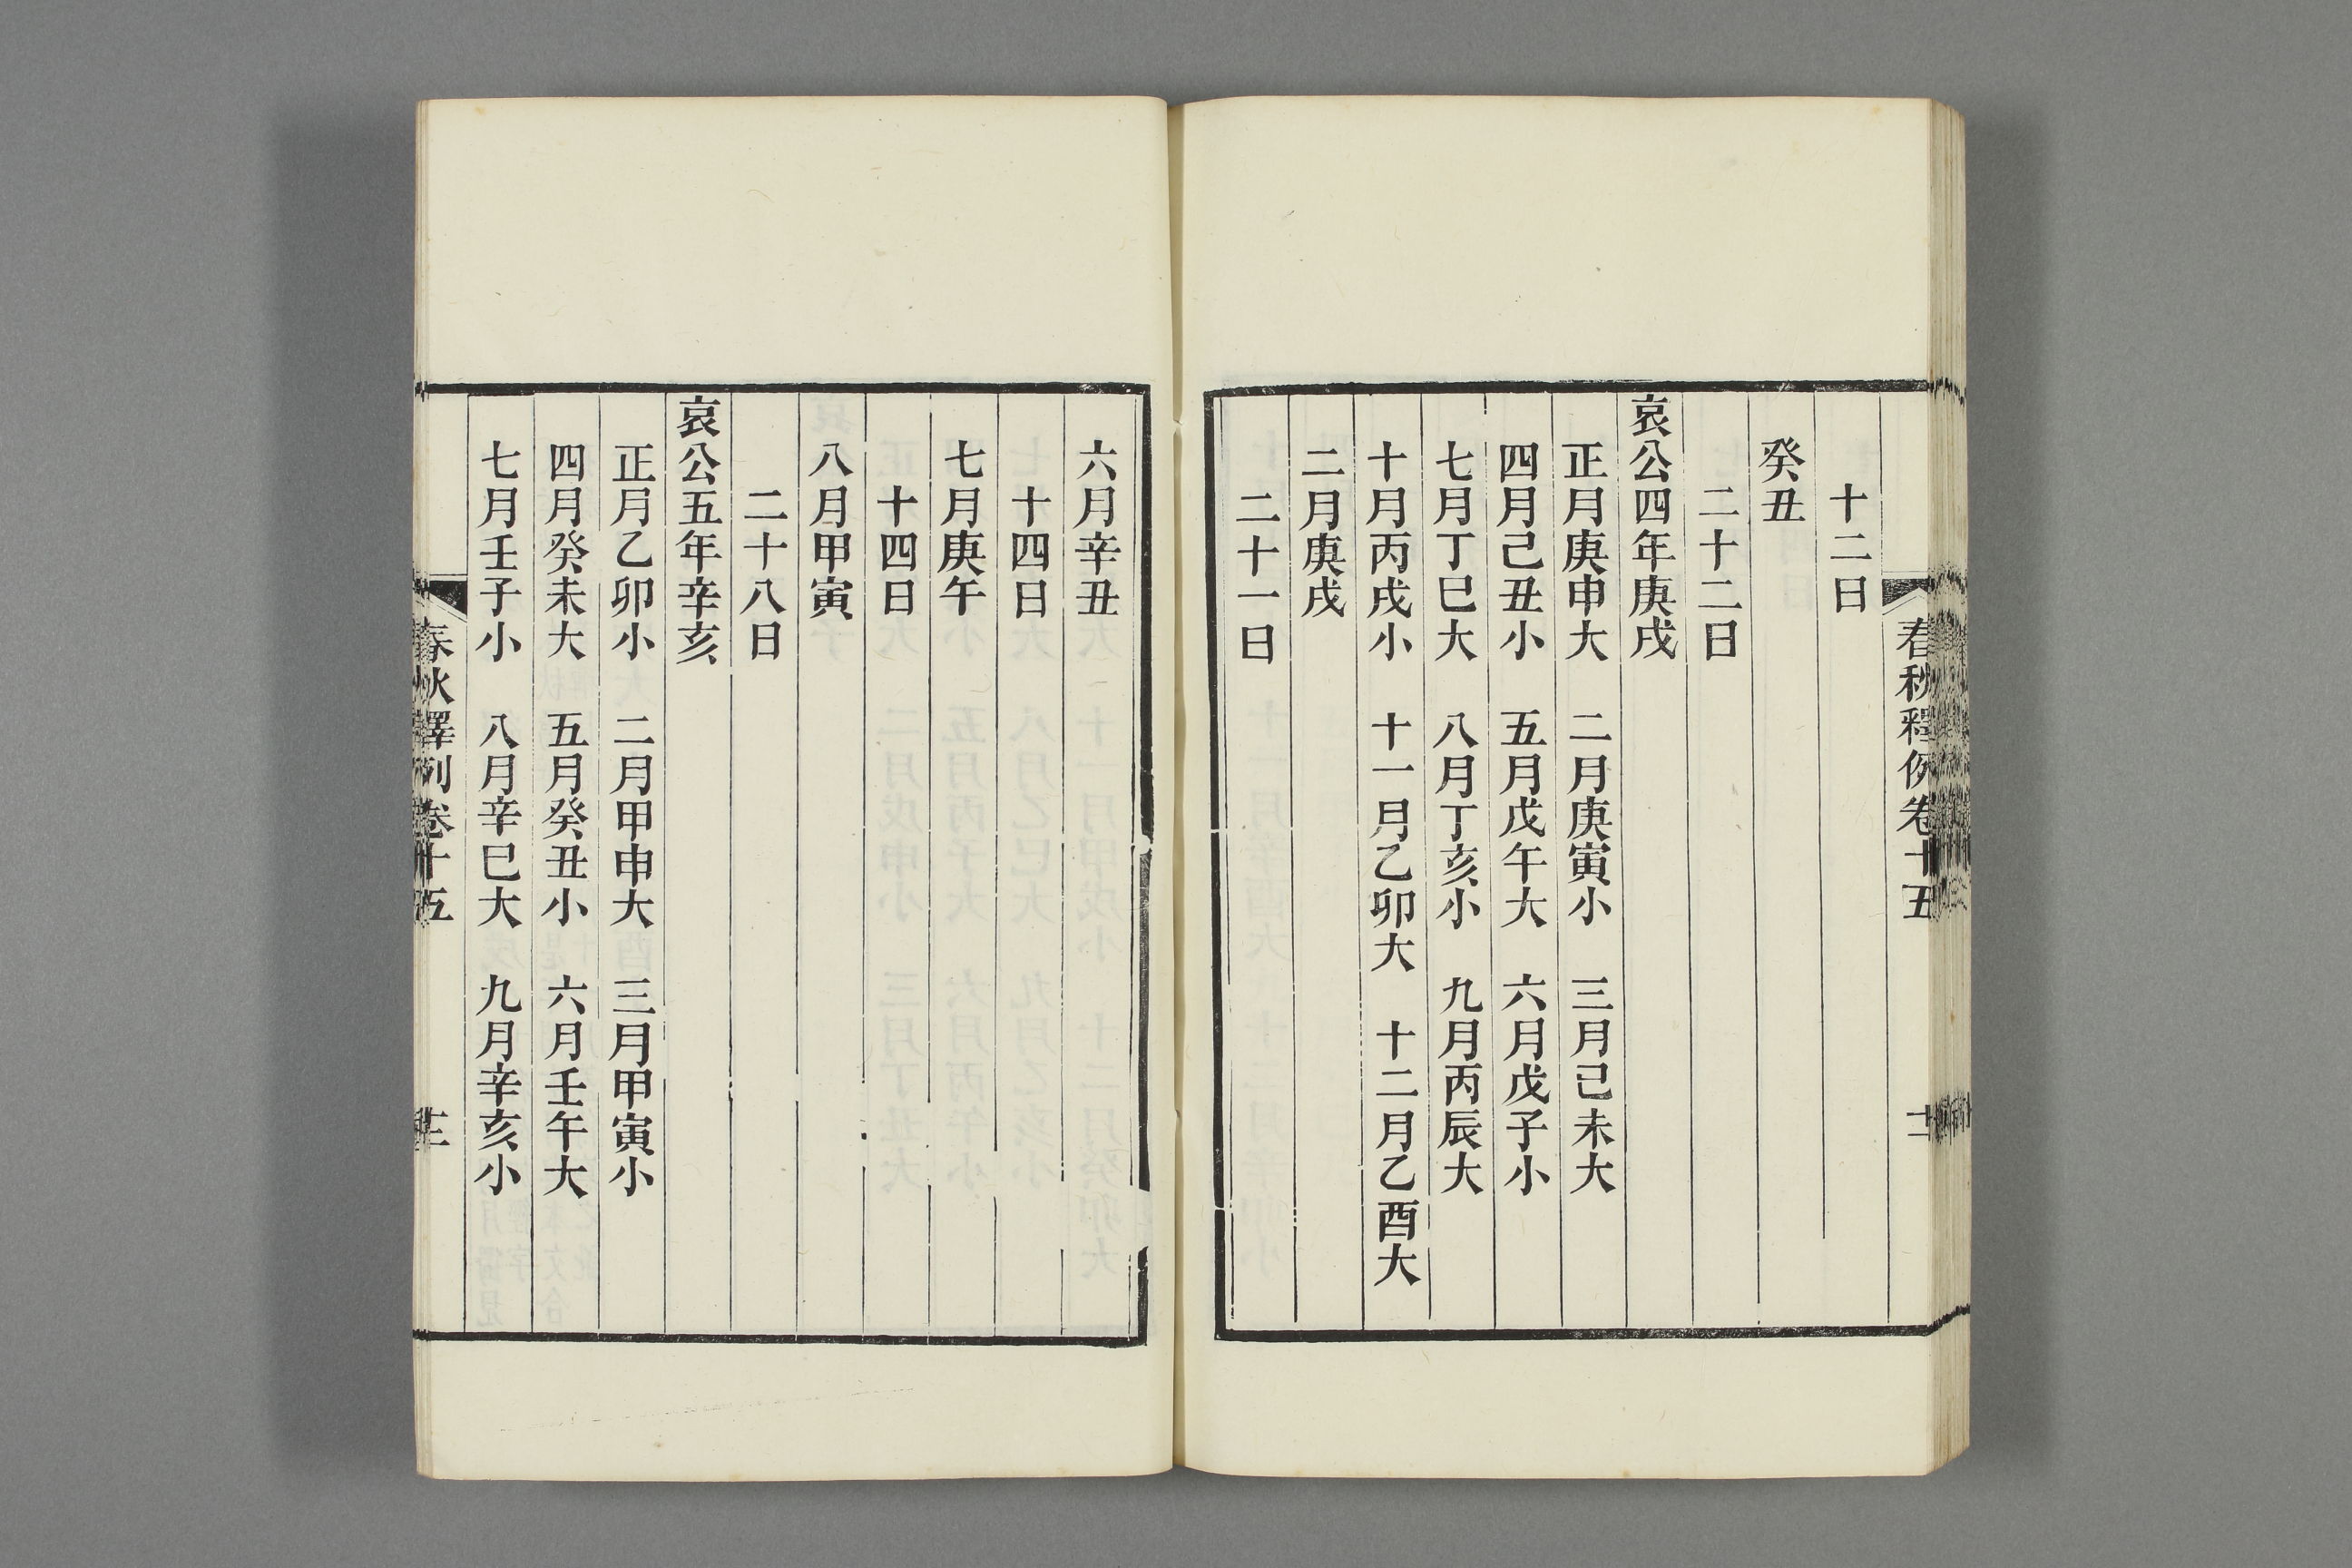 春秋釋例卷十五
十二日
癸丑
二十二日
哀公四年庚戌
正月庚申大 二月庚寅小 三月己未大
四月己丑小 五月戊午大 六月戊子小
七月丁巳大 八月丁亥小 九月丙辰大
十月丙戌小 十一月乙卯大 十二月乙酉大
二月庚戌
二十一日
六月辛丑
十四日
七月庚午
十四日
八月甲寅
二十八日
哀公五年辛亥
正月乙卯小 二月甲申大 三月甲寅小
四月癸未大 五月癸丑小 六月壬午大
七月壬子小 八月辛巳大 九月辛亥小
春秋釋例卷十五